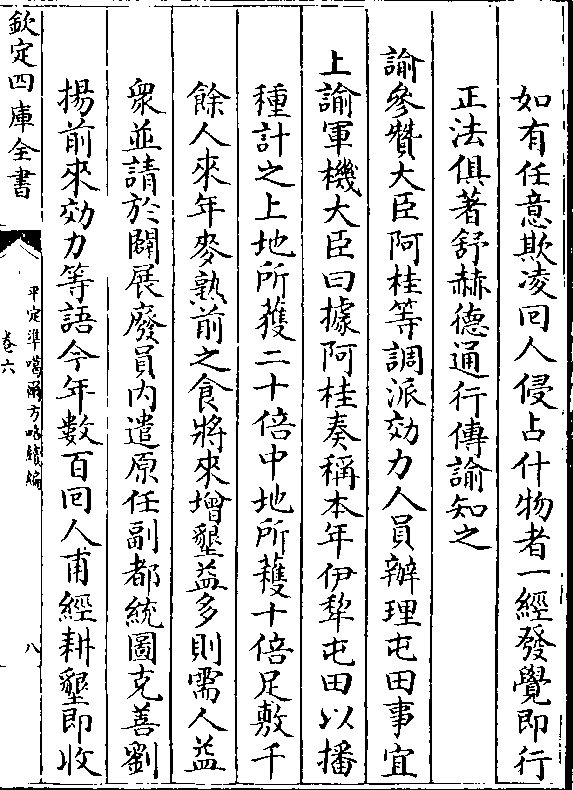 如有任意欺凌回人侵占什物者一經發覺即行
正法俱著舒赫德通行傳諭知之
諭參贊大臣阿桂等調派効力人員辦理屯田事宜
上諭軍機大臣曰據阿桂奏稱本年伊犂屯田以播
種計之上地所獲二十倍中地所穫十倍足敷千
餘人來年麥熟前之食將來增墾益多則需人益
衆並請於闢展廢員內遣原任副都統圖克善劉
揚前來効力等語今年數百回人甫經耕墾即收
欽定四庫全書
平定準噶爾方略續編
卷六
八